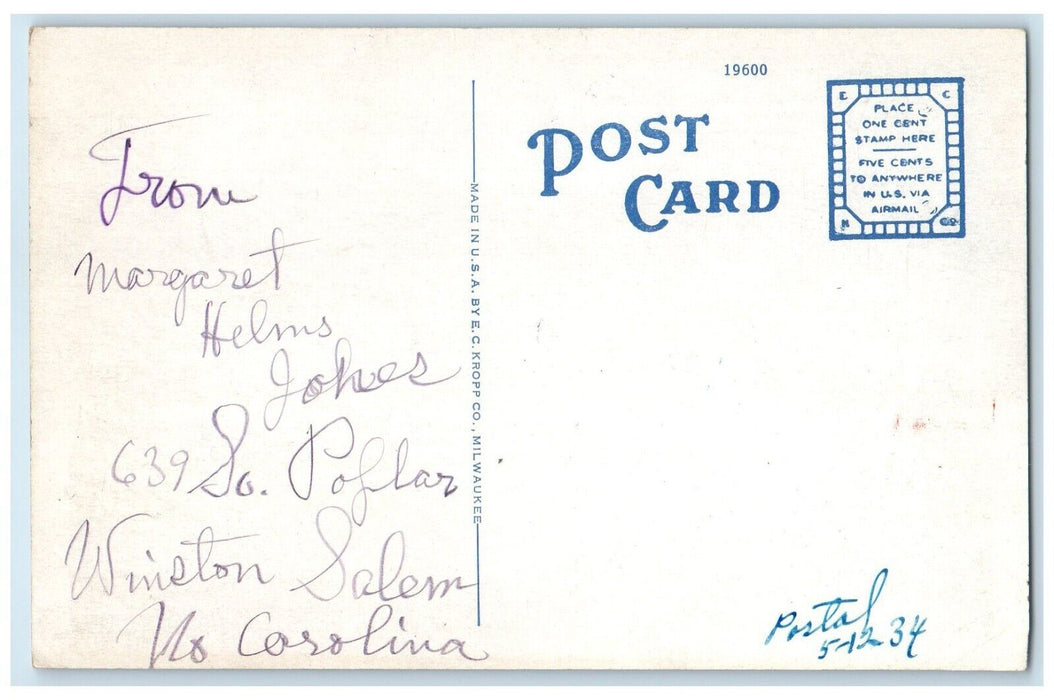 From
Margaret
Helms
Jokes
639 So. Poplar
Winston Salem
No Carolina
MADE IN U.S.A. BY E. C. KROPP CO., MILWAUKEE
19600
POST
CARD
E C
PLACE
ONE CENT
STAMP HERE
FIVE CENTS
TO ANYWHERE
IN U.S. VIA
AIRMAIL
K CO
Postal
5-12-34